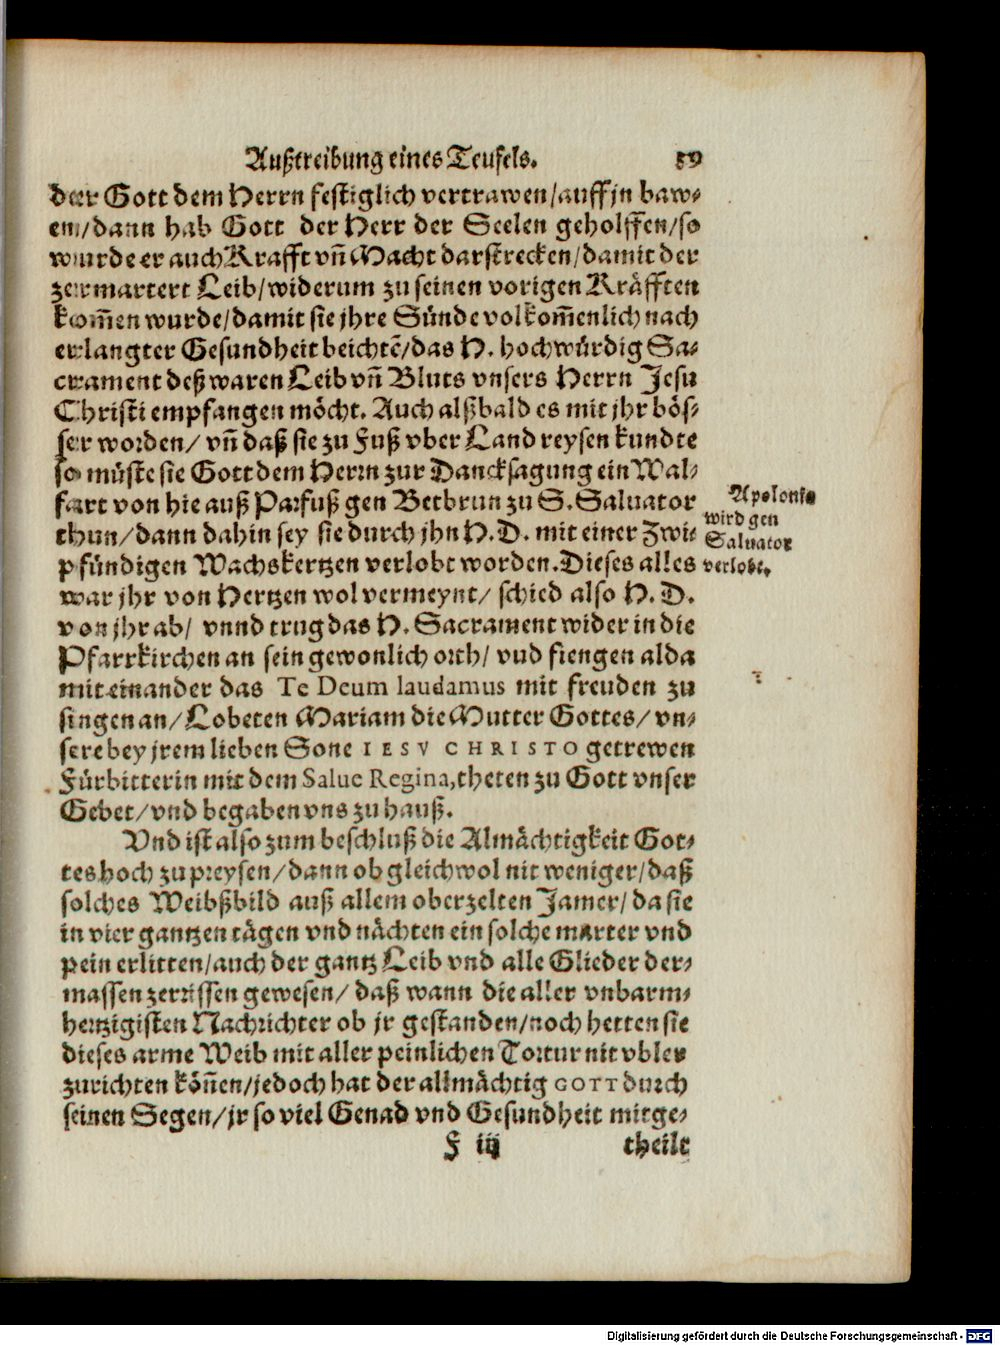 Außtreibung eines Teufels. 59
der Gott dem Herrn festiglich vertrawen/auff jn baw-
en/dann hab Gott der Herr der Seelen geholffen/so
wurde er auch Krafft vñ Macht darstrecken/damit der
zermartert Leib/widerum zu seinen vorigen Kräfften
kom̃en wurde/damit sie jhre Sünde volkom̃enlich nach
erlangter Gesundheit beichtẽ/das H. hochwürdig Sa-
crament deß waren Leib vñ Bluts vnsers Herrn Jesu
Christi empfangen möcht. Auch alßbald es mit jhr bös-
ser worden/ vñ daß sie zu Fuß vber Land reysen kundte
so müste sie Gott dem Herrn zur Dancksagung ein Wal-
fart von hie auß Parfuß gen Betbrun zu S. Saluator
thun/dann dahin sey sie durch jhn H. D. mit einer Zwi-
pfündigen Wachskertzen verlobt worden. Dieses alles
war jhr von Hertzen wol vermeynt/ schied also H. D.
von jhr ab/ vnnd trug das H. Sacrament wider in die
Pfarrkirchen an sein gewonlich orth/ vud fiengen alda
mit einander das Te Deum laudamus mit freuden zu
singen an/Lobeten Mariam die Mutter Gottes/vn-
sere bey jrem lieben Sone IESV CHRISTO getrewen
Fürbitterin mit dem Salue Regina, theten zu Gott vnser
Gebet/vnd begaben vns zu hauß.
Vnd ist also zum beschluß die Almächtigkeit Got-
tes hoch zu preysen/dann ob gleichwol nit weniger/daß
solches Weibßbild auß allem oberzelten Jamer/ da sie
in vier gantzen tägen vnd nächten ein solche marter vnd
pein erlitten/auch der gantz Leib vnd alle Glieder der-
massen zerrissen gewesen/ daß wann die aller vnbarm-
hertzigisten Nachrichter ob jr gestanden/noch hetten sie
dieses arme Weib mit aller peinlichen Tortur nit vbler
zurichten köñen/jedoch hat der allmächtig GOTT durch
seinen Segen/jr so viel Genad vnd Gesundheit mitge-
F iij theilt
Apolonia
wird gen
Saluator
verlobt.
Digitalisierung gefördert durch die Deutsche Forschungsgemeinschaft - DFG